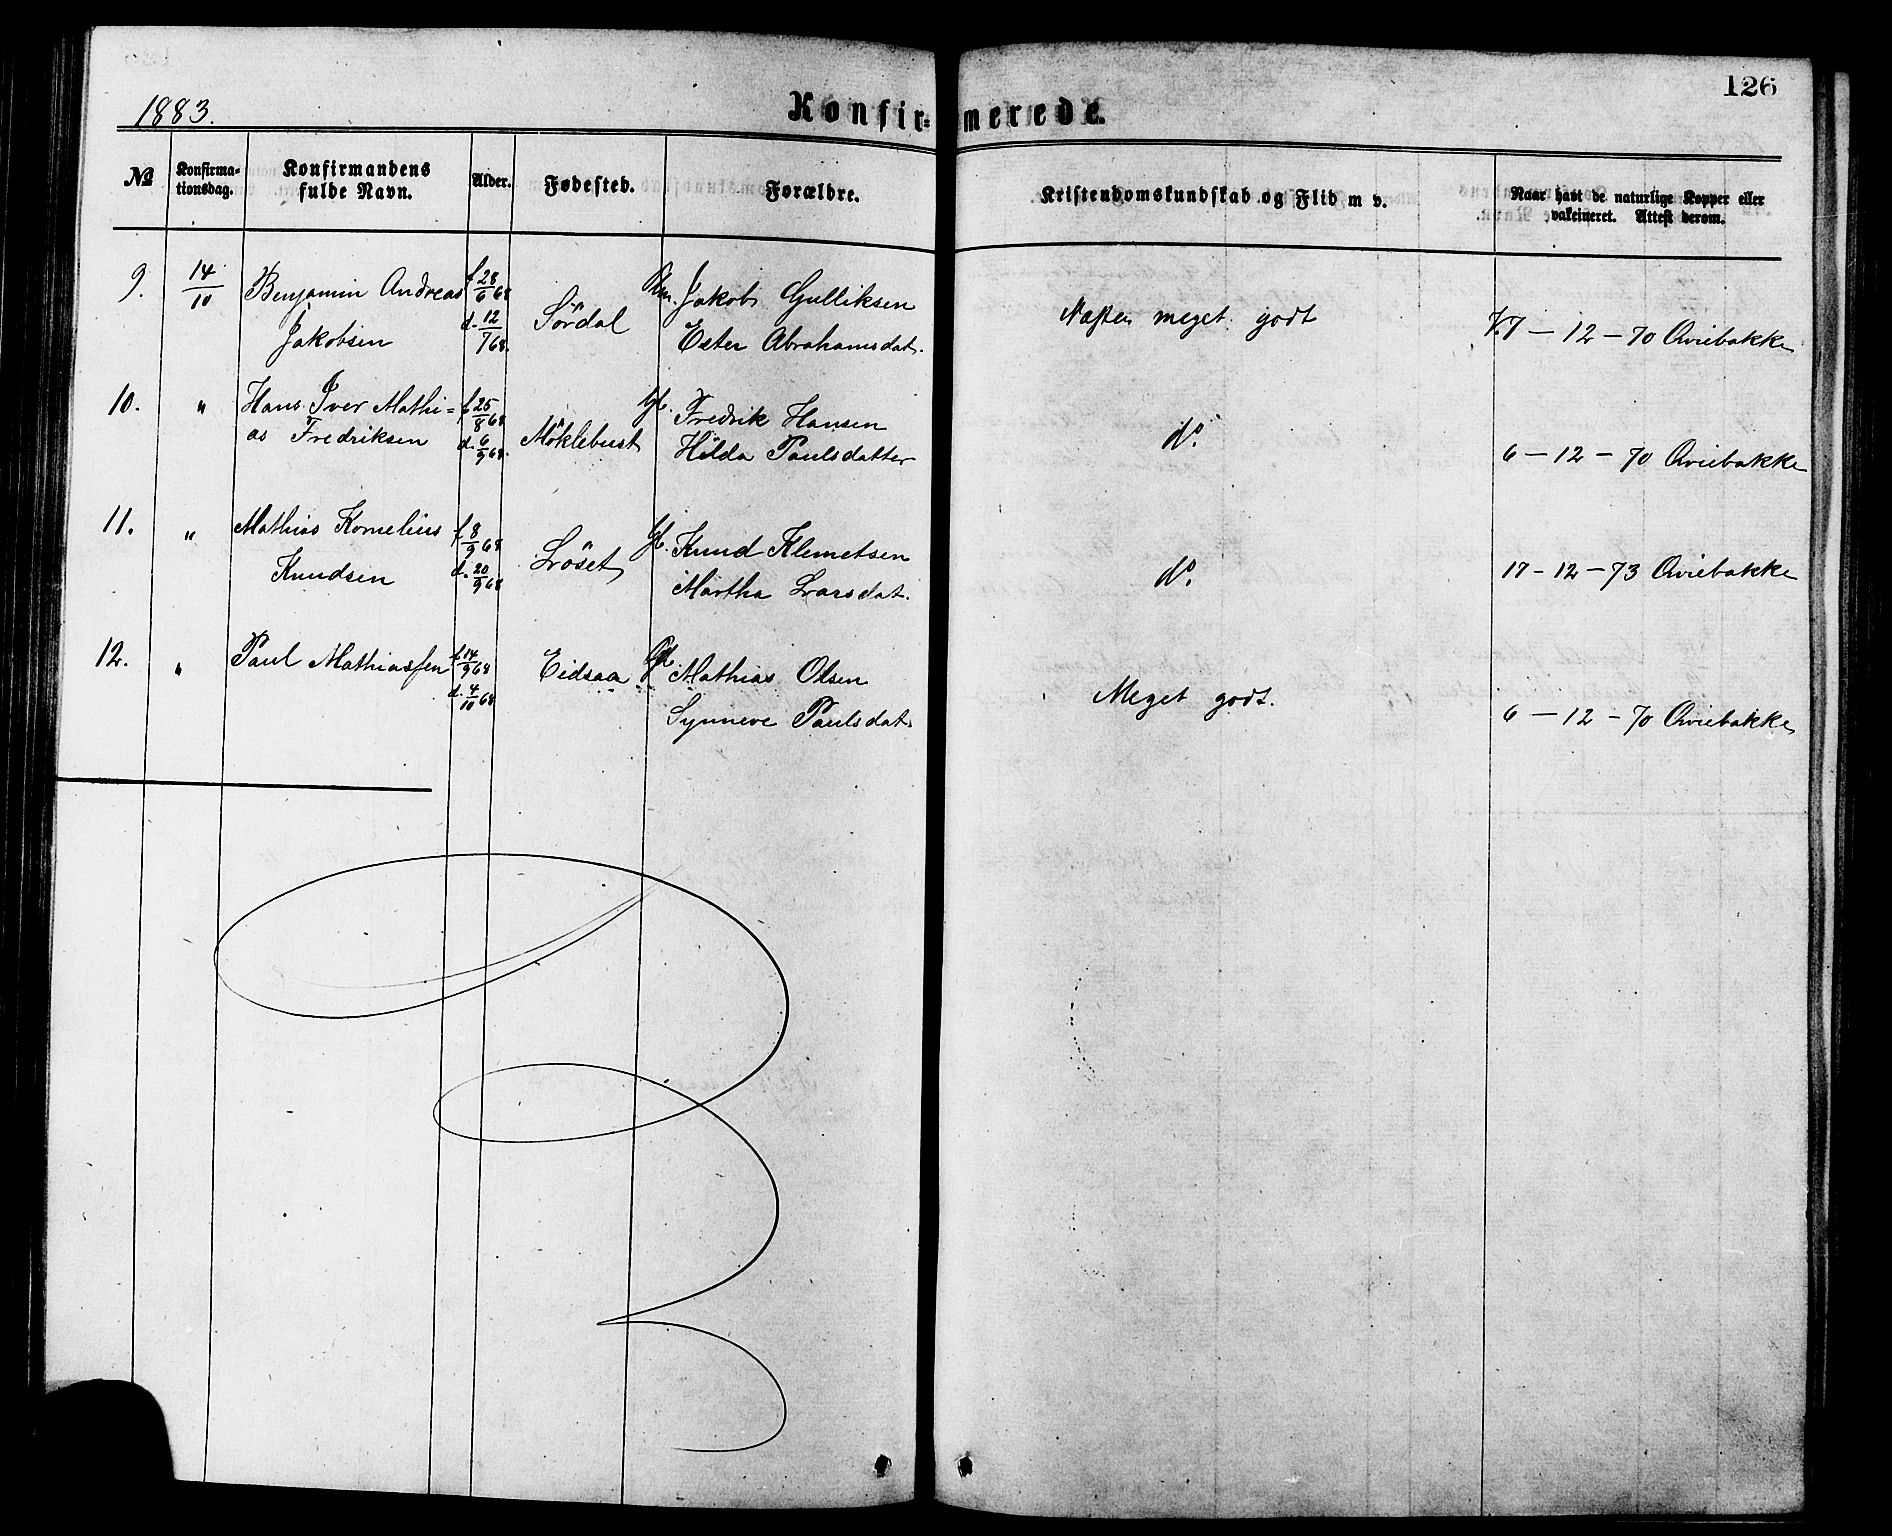 126
1883.
Konfir=merede.
No Konfirma-tionsdag. Konfirmandens fulde Navn. Alder. Fødested. Forældre. Kristendomskundskab og Flid m v. Naar havt de naturlige Kopper eller vakcineret. Attest derom.
9. 14/10 Benjamin Andreas f. 28/6 68 Sördal Jakob Gulliksen Næsten meget godt 7-12-70 Qviebakke
Jakobsen d. 12/7 68. Ester Abrahamsdat.
10. " Hans Iver Mathi= f. 25/8 68 Möklebust Fredrik Hansen do. 6-12-70 Qviebakke
as Fredriksen d. 6/9 68. Hilda Paulsdatter
11. " Mathias Kornelius f. 8/9 68 Löset Knud Klemetsen do. 17-12-73 Qviebakke
Knudsen d. 20/9 68 Martha Larsdat.
12. " Paul Mathiassen f. 14/9 68 Eidsaa Mathias Olsen Meget godt. 6-12-70 Qviebakke
d. 4/10 68 Synneve Paulsdat